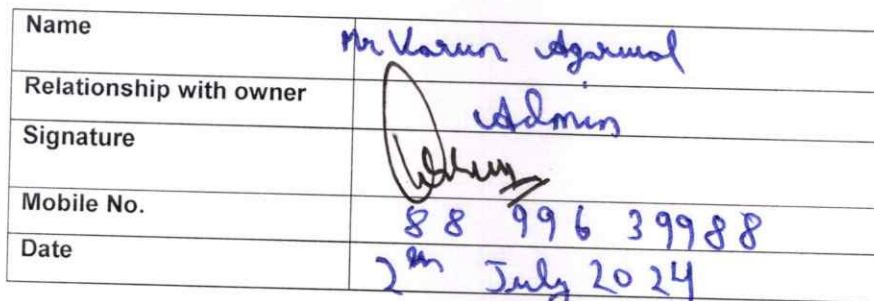 Name Mr Varun Agarwal
Relationship with owner Admin
Signature
Mobile No. 88 996 39988
Date 2nd July 2024